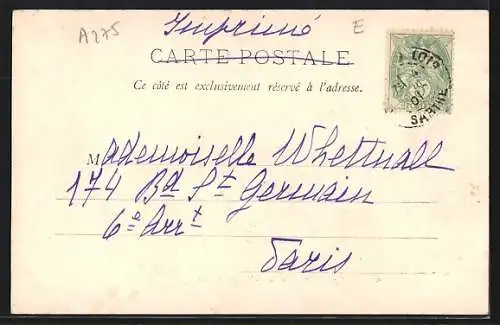 A275
Imprimé
E
CARTE POSTALE
Ce côté est exclusivement réservé à l'adresse.
SARTHE
Mademoiselle Whettnall
174 Bd St Germain
6e Arrt
Paris